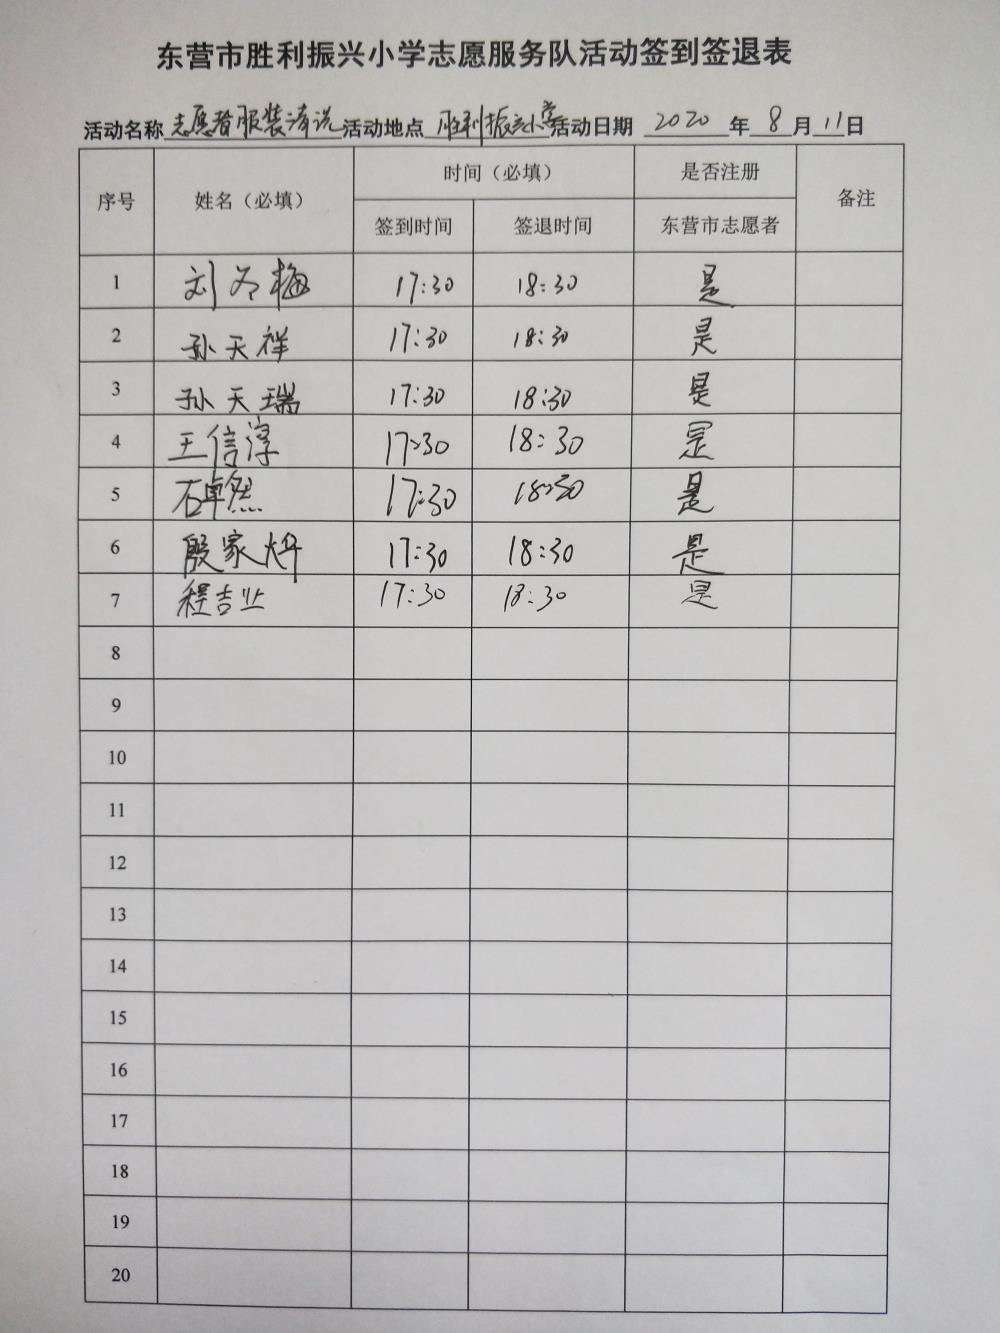 东营市胜利振兴小学志愿服务队活动签到签退表
活动名称 志愿者服装清洗 活动地点 胜利振兴小学 活动日期 2020 年 8 月 11 日
序号 姓名（必填） 时间（必填） 是否注册 备注
签到时间 签退时间 东营市志愿者
1 刘冬梅 17:30 18:30 是
2 孙天祥 17:30 18:30 是
3 孙天瑞 17:30 18:30 是
4 王信淳 17:30 18:30 是
5 石卓然 17:30 18:30 是
6 殷家烨 17:30 18:30 是
7 程吉业 17:30 18:30 是
8
9
10
11
12
13
14
15
16
17
18
19
20